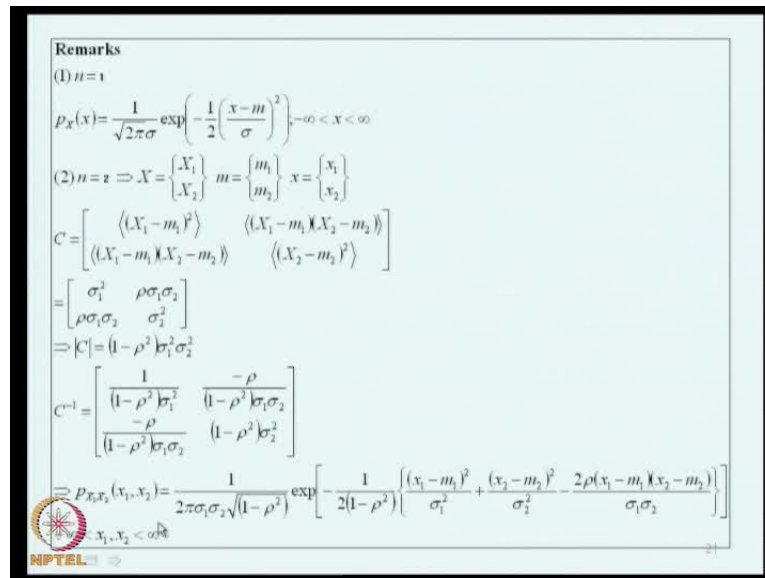 Remarks
(1) n = 1
p_X(x) = \frac{1}{\sqrt{2\pi}\sigma} \exp\left(-\frac{1}{2}\left(\frac{x-m}{\sigma}\right)^2\right); -\infty < x < \infty
(2) n = 2 ⇒ X = \begin{Bmatrix} X_1 \\ X_2 \end{Bmatrix} m = \begin{Bmatrix} m_1 \\ m_2 \end{Bmatrix} x = \begin{Bmatrix} x_1 \\ x_2 \end{Bmatrix}
C = \begin{bmatrix} \langle (X_1-m_1)^2 \rangle & \langle (X_1-m_1)(X_2-m_2) \rangle \\ \langle (X_1-m_1)(X_2-m_2) \rangle & \langle (X_2-m_2)^2 \rangle \end{bmatrix}
= \begin{bmatrix} \sigma_1^2 & \rho\sigma_1\sigma_2 \\ \rho\sigma_1\sigma_2 & \sigma_2^2 \end{bmatrix}
⇒ |C| = (1-\rho^2)\sigma_1^2\sigma_2^2
C^{-1} = \begin{bmatrix} \frac{1}{(1-\rho^2)\sigma_1^2} & \frac{-\rho}{(1-\rho^2)\sigma_1\sigma_2} \\ \frac{-\rho}{(1-\rho^2)\sigma_1\sigma_2} & (1-\rho^2)\sigma_2^2 \end{bmatrix}
⇒ p_{X_1X_2}(x_1,x_2) = \frac{1}{2\pi\sigma_1\sigma_2\sqrt{(1-\rho^2)}} \exp\left[-\frac{1}{2(1-\rho^2)}\left\{\frac{(x_1-m_1)^2}{\sigma_1^2} + \frac{(x_2-m_2)^2}{\sigma_2^2} - \frac{2\rho(x_1-m_1)(x_2-m_2)}{\sigma_1\sigma_2}\right\}\right]
< x_1, x_2 < \infty
NPTEL